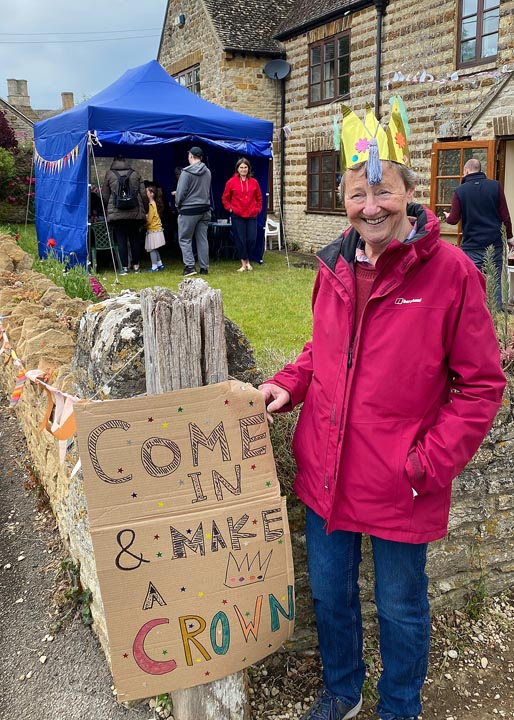 COME
IN
& MAKE
A
CROWN